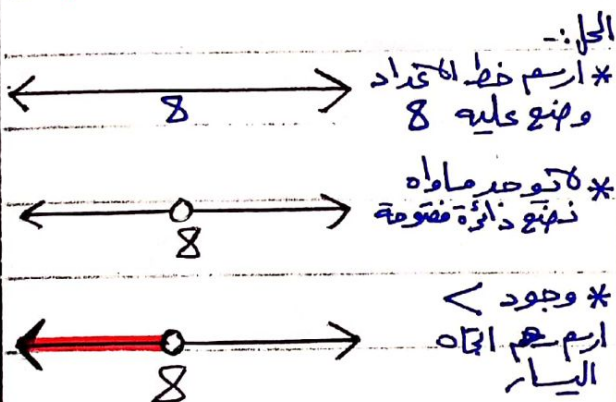 الحل :-
* ارسم خط الاعداد
وضع عليه 8
8
* لا توجد مساواه
نضع دائرة مفتوحة
8
* وجود >
ارسم سهم اتجاه
اليسار
8